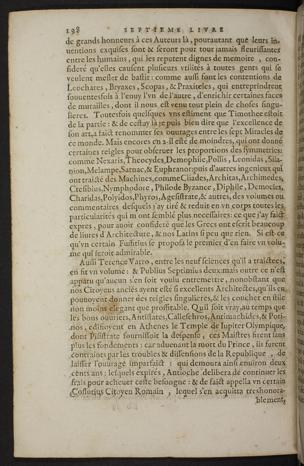 198 SEPTIEME LIVRE
de grands honneurs à ces Auteurs là, pourautant que leurs in-
uentions exquises sont & seront pour tour jamais fleurissantes
entre les humains, qui les reputent dignes de memoire, con-
sideré qu'elles causent plusieurs visites à toutes gens qui se
veulent mesler de bastir: comme aussi sont les contentions de
Leochares, Bryaxes, Scopas, & Praxiteles, qui entreprindrent
souuentesfois à l'enuy l'vn de l'autre, d'enrichir certaines faces
de murailles, dont il nous est venu tout plein de choses singu-
lieres. Toutesfois quelques vns estiment que Timothee estoit
de la partie: & de cestuy là je puis bien dire que l'excellence de
son art, a faict renommer ses ouurages entre les sept Miracles de
ce monde. Mais encores en a il esté de moindres, qui ont donné
certaines reigles pour obseruer les proportions des symmetries:
comme Nexaris, Theocydes, Demophile, Pollis, Leonidas, Sila-
nion, Melampe, Sarnac, & Euphranor: puis d'autres ingenieux qui
ont traicté des Machines, comme Cliades, Archita, Archimedes,
Ctesibius, Nymphodore, Philode Byzance, Diphile, Democles,
Charidas, Polyidos, Phyros, Agesistrate, & autres, des volumes ou
commentaires desquels j'ay tiré & reduit en vn corps toutes les
particularitez qui m'ont semblé plus necessaires: ce que j'ay faict
expres, pour auoir consideré que les Grecs ont escrit beaucoup
de liures d'Architecture, & nos Latins si peu que rien. Si est ce
qu'vn certain Fusitius se proposa le premier d'en faire vn volu-
me qui seroit admirable.
Aussi Terence Varro, entre les neuf sciences qu'il a traictees,
en fit vn volume: & Publius Septimius deux: mais outre ce n'est
apparu qu'aucun s'en soit voulu entremettre, nonobstant que
nos Citoyens anciens ayent esté si excellents Architectes, qu'ils en
pouuoyent donner des reigles singulieres, & les coucher en stile
non moins elegant que proffitable. Qu'il soit vray, au temps que
les bons ouuriers, Antistates, Callescheros, Antimachides, & Pori-
nos, edifioyent en Athenes le Temple de Iupiter Olympique,
dont Pisistrate fournissoit la despense, ces Maistres firent sans
plus les fondements: car aduenant la mort du Prince, ils furent
contraints par les troubles & dissensions de la Republique, de
laisser l'ouurage imparfaict: qui demoura ainsi enuiron deux
cents ans: lesquels expirés, Antioche delibera de continuer les
frais pour acheuer ceste besongne: & de faict appella vn certain
Cossutius Citoyen Romain, lequel s'en acquitta treshonora-
blement,